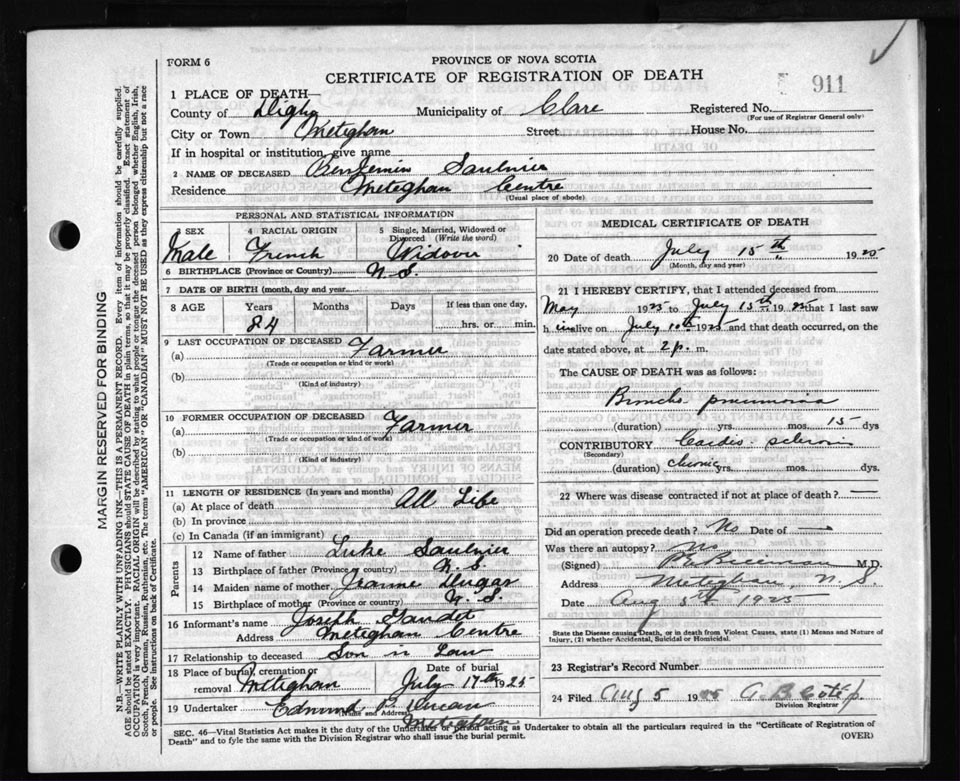 FORM 6
PROVINCE OF NOVA SCOTIA
CERTIFICATE OF REGISTRATION OF DEATH
911
1 PLACE OF DEATH—
County of Digby Municipality of Clare Registered No.
(For use of Registrar General only)
City or Town Meteghan Street House No.
If in hospital or institution, give name
2 NAME OF DECEASED Benjemin Saulnier
Residence Meteghan Centre
(Usual place of abode)
PERSONAL AND STATISTICAL INFORMATION
3 SEX 4 RACIAL ORIGIN 5 Single, Married, Widowed or Divorced (Write the word)
Male French Widover
6 BIRTHPLACE (Province or Country) N.S.
7 DATE OF BIRTH (month, day and year)
8 AGE Years Months Days If less than one day,
84 hrs. or min.
9 LAST OCCUPATION OF DECEASED
(a) Farmer
(Trade or occupation or kind or work)
(b)
(Kind of industry)
10 FORMER OCCUPATION OF DECEASED
(a) Farmer
(Trade or occupation or kind of work)
(b)
(Kind of industry)
11 LENGTH OF RESIDENCE (In years and months)
(a) At place of death All Life
(b) In province
(c) In Canada (if an immigrant)
Parents
12 Name of father Luke Saulnier
13 Birthplace of father (Province or country) N.S.
14 Maiden name of mother Jeanne Dugas
15 Birthplace of mother (Province or country) N.S.
16 Informant's name Joseph Gaudet
Address Meteghan Centre
17 Relationship to deceased Son in Law
18 Place of burial, cremation or removal Meteghan Date of burial July 17th 1925
19 Undertaker Edmund P.
(Name and Address) Meteghan
MEDICAL CERTIFICATE OF DEATH
20 Date of death July 15th 1925
(Month, day and year)
21 I HEREBY CERTIFY, that I attended deceased from
May 1925 to July 15th 1925 that I last saw
him alive on July 10th 1925 and that death occurred, on the
date stated above, at 2 p. m.
The CAUSE OF DEATH was as follows:
Broncho pneumonia
(duration) yrs. mos. 15 dys
CONTRIBUTORY Cardio-sclerosis
(Secondary)
(duration) chronic yrs. mos. dys.
22 Where was disease contracted if not at place of death? —
Did an operation precede death? No Date of —
Was there an autopsy? No
(Signed) M.D.
Address Meteghan N.S.
Date Aug 5th 1925
State the Disease causing Death, or in death from Violent Causes, state (1) Means and Nature of
Injury, (2) whether Accidental, Suicidal or Homicidal.
23 Registrar's Record Number
24 Filed Aug 5 1925
Division Registrar
SEC. 46—Vital Statistics Act makes it the duty of the Undertaker or person acting as Undertaker to obtain all the particulars required in the "Certificate of Registration of
Death" and to fyle the same with the Division Registrar who shall issue the burial permit.
(OVER)
MARGIN RESERVED FOR BINDING
N.B.—WRITE PLAINLY WITH UNFADING INK—THIS IS A PERMANENT RECORD. Every item of information should be carefully supplied.
AGE should be stated EXACTLY. PHYSICIANS should STATE CAUSE OF DEATH in plain terms, so that it may be properly classified. Exact statement of
OCCUPATION is very important. RACIAL ORIGIN will be described by stating to what people or tongue the deceased person belonged whether English, Irish,
Scotch, French, German, Russian, Ruthenian, etc. The terms "AMERICAN" or "CANADIAN" MUST NOT BE USED as they express citizenship but not a race
or people. See instructions on back of Certificate.